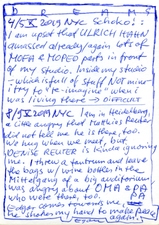 D R E A M S
4/5 2019 NYC Schoko!:
I am upset that ULLRICH HAHN
amassed already/again lots of
MOFA & MOPED parts in front
of my studio. Inside my studio
which is full of stuff. Not mine
try to "re-imagine" when I
was living there → DIFFICULT
8/5/2019 NYC I'm in Heidelberg,
a little angry that Markus Becker
did not tell me he is there, too.
We hug when we meet, but
DENISE REUTER is kinda ignoring
me. I throw a tantrum and leave
the boys w/ wine bottles in the
Mittelgang of a big auditorium,
was angry about OMA & OPA
who were there, too.
comes towards me,
he shakes my hand to make peace
again.